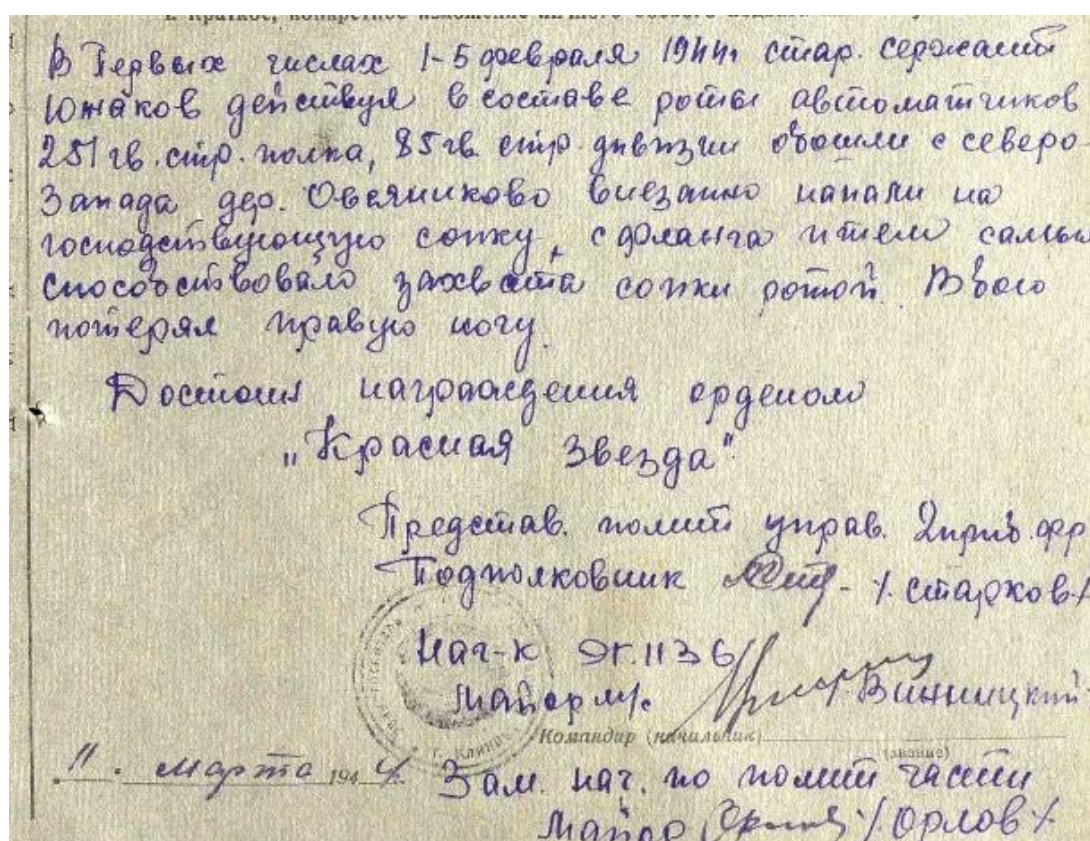 1. Краткое, конкретное изложение личного боевого
В Первых числах 1-5 февраля 1944г стар. сержант
Южаков действуя в составе роты автоматчиков
251 гв. стр. полка, 85 гв. стр. дивизии обошли с северо
Запада дер. Овсяниково внезапно напали на
господствующую сопку, с фланга и тем самым
способствовало захвата сопки ротой. В бою
потерял правую ногу.
Достоин награждения орденом
„Красная Звезда"
Представ. полит управ. 2 приб. фр
Подполковник /. Старков./
Нач-к ЭГ. 1136
Майор м/с Винницкий
Командир (начальник)
(звание)
"11" марта 1944 Зам. нач. по полит части
Майор /Орлов/
г. Клин